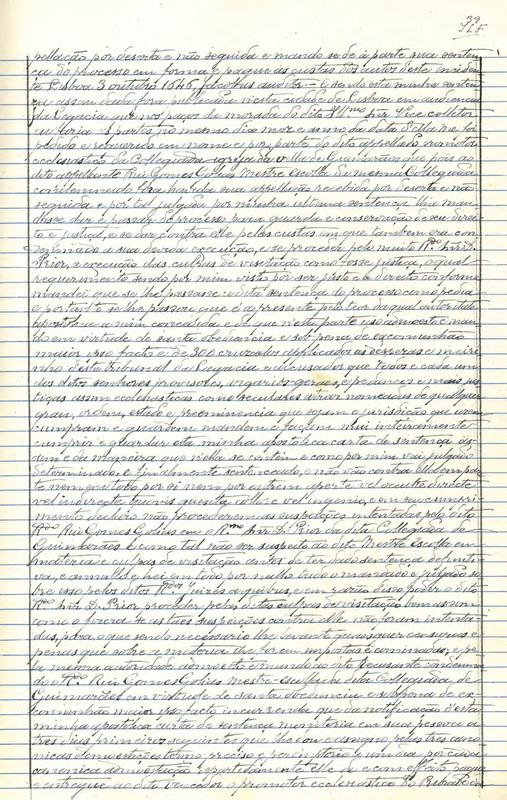 39
pellação por deserta e não seguida e mando se dê á parte sua senten-
ça do processo em forma e pague as custas dos autos d'este inciden-
te Lisboa 3 outubro 1646, Jacobus auditor — E sendo esta minha senten-
ça assim dada fora publicada nesta cidade de Lisboa em audiencia
da Legacia que nos paços da morada do dito Ill.mo Snr. Vice collector
ás partes no mesmo dia mez e anno da data d'ella me foi
pedido e requerido em nome e por parte do dito appellado promotor
ecclesiastico da Collegiada igreja da villa de Guimarães que pois ao
dito appellante Rui Gomes Golias Mestre escolla da mesma Collegiada
condemnado lhe havida sua appellação recebida por deserta e não
seguida e por tal julgada por minha ultima sentença lhe man-
dasse dar e passar do processo para guarda e conservação de seu direi-
to e justiça, e se dar contra elle pelas custas em que tambem era con-
demnado a sua devida execução, e se proceder pelo muito R.do Snr. D.
Prior, a execução das culpas de visitação como fosse justiça, o qual
requerimento sendo por mim visto por ser justo e a direito conforme
mandei que se lhe passasse a dita sentença do processo como pedia
e portanto se lhe passou que é a presente pelo teor da qual autoridade
apostolica a mim concedida e de que nesta parte uso admoesto e man-
do em virtude de santa obediencia e sob pena de excomunhão
maior ipso facto e de 300 cruzados applicados as despezas e meiri-
nho d'este tribunal da Legacia e accusador que todos e cada um
dos ditos senhores provisores, vigarios geraes, e pedaneos e mais jus-
tiças assim ecclesiasticas como seculares de qualquer
grau, ordem, estado e preeminencia que sejam e jurisdição que usem
cumpram e guardem mandem e façam mui inteiramente
cumprir e guardar esta minha apostolica carta de sentença as-
sim e da maneira que nella se contém e como por mim vai julgado
determinado e finalmente sentenciado, e não vão contra ella em par-
te nem em todo por si nem por outrem aperte vel occulte directe
vel indirecte quovis quesito collore vel ingenio, e em seu cumpri-
mento declaro não procederem as suspeições intentadas pelo dito
R.do Rui Gomes Golias em o R.mo Snr. D. Prior da dita Collegiada de
Guimarães e como tal não ser suspeito ao dito Mestre Escolla em
materia e culpas de visitação antes de ter dado sentença definiti-
va, e annullo e hei em todo por nullo tudo o mandado e julgado so-
bre isso pelos ditos R.dos Juizes arguidos, e em razão disso poder o dito
R.mo Snr. D. Prior proceder pelas ditas culpas de visitação bem assim
como o fizera se as taes suspeições contra elle não foram intenta-
das, para o que sendo necessario lhe levanto quaesquer censuras e
penas que sobre a materia lhe forem impostas e cominadas, e pe-
la mesma autoridade admoesto e mando ao dito recusante condemna-
do o R.do Rui Gomes Golias mestre-escolla da dita Collegiada de
Guimarães em virtude de santa obediencia e sob pena de ex-
comunhão maior ipso facto incurrenda que da notificação d'esta
minha apostolica carta de sentença monitoria em sua pessoa a
tres dias primeiros seguintes que lhe dou e assigno, pelas tres cano-
nicas admoestações termo preciso e peremptorio e um dia por cada
canonica admoestação repartidamente elle dê e com effeito pague
e entregue ao dito vencedor o promotor ecclesiastico